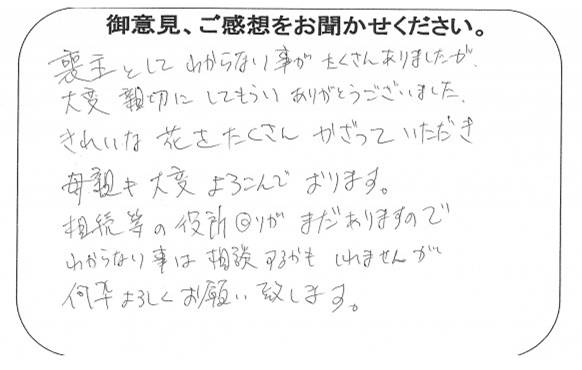 御意見、ご感想をお聞かせください。
喪主として わからない事が たくさんありましたが、
大変 親切に してもらい ありがとうございました。
きれいな 花を たくさん かざって いただき
母親も 大変 よろこんで おります。
相続等の 役所回りが まだ ありますので
わからない事は 相談するかも しれませんが
何卒よろしく お願い 致します。